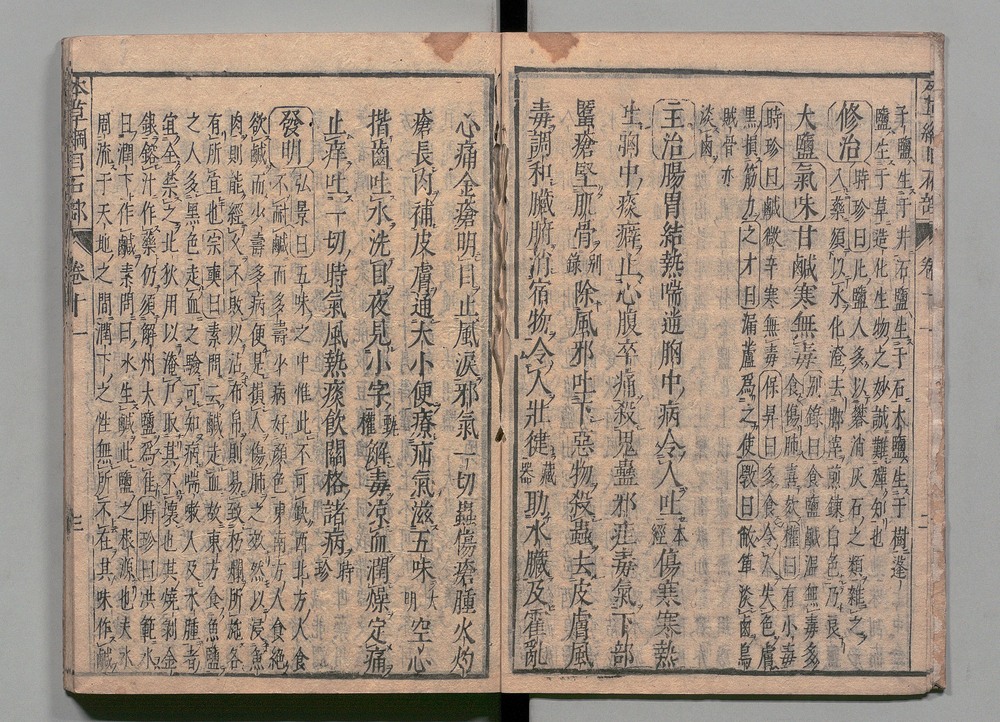 于鹽生于井石鹽生于石木鹽生于樹蓬
鹽生于草造化生物之妙誠難殫知也
修治時珍曰凡鹽人多以礬消灰石之類雜之
入藥須以水化澄去脚滓煎鍊白色乃良
大鹽氣味甘鹹寒無毒别錄曰食鹽鹹溫無毒多
食傷肺喜欬權曰有小毒
時珍曰鹹微辛寒無毒保昇曰多食令人失色膚
黑損筋力之才曰漏蘆爲之使斆曰敝箄淡鹵烏
賊骨亦
淡鹵
主治腸胃結熱喘逆胸中病令人吐本經傷寒寒熱
吐胸中痰癖止心腹卒痛殺鬼蠱邪疰毒氣下部
䘌瘡堅肌骨别錄除風邪吐下惡物殺蟲去皮膚風
毒調和臟腑消宿物令人壯健藏器助水臟及霍亂
心痛金瘡明目止風淚邪氣一切蟲傷瘡腫火灼
瘡長肉補皮膚通大小便療疝氣滋五味大明空心
揩齒吐水洗目夜見小字甄權解毒凉血潤燥定痛
止痒吐一切時氣風熱痰飲關格諸病時珍
發明弘景曰五味之中惟此不可缺西北方人食
不耐鹹而多壽少病好顔色東南方人食絶
欲鹹而少壽多病便是損人傷肺之效然以浸魚
肉則能經久不敗以沾布帛則易致朽爛所施各
有所宜也宗奭曰素問云鹹走血故東方食魚鹽
之人多黑色走血之驗可知病喘嗽人及水腫者
宜全禁之北狄用以淹尸取其不壞也其燒剥金
銀鎔汁作藥仍須解州大鹽爲佳時珍曰洪範水
曰潤下作鹹素問曰水生鹹此鹽之根源也夫水
周流于天地之間潤下之性無所不在其味作鹹
本草綱目石部
卷十一
三